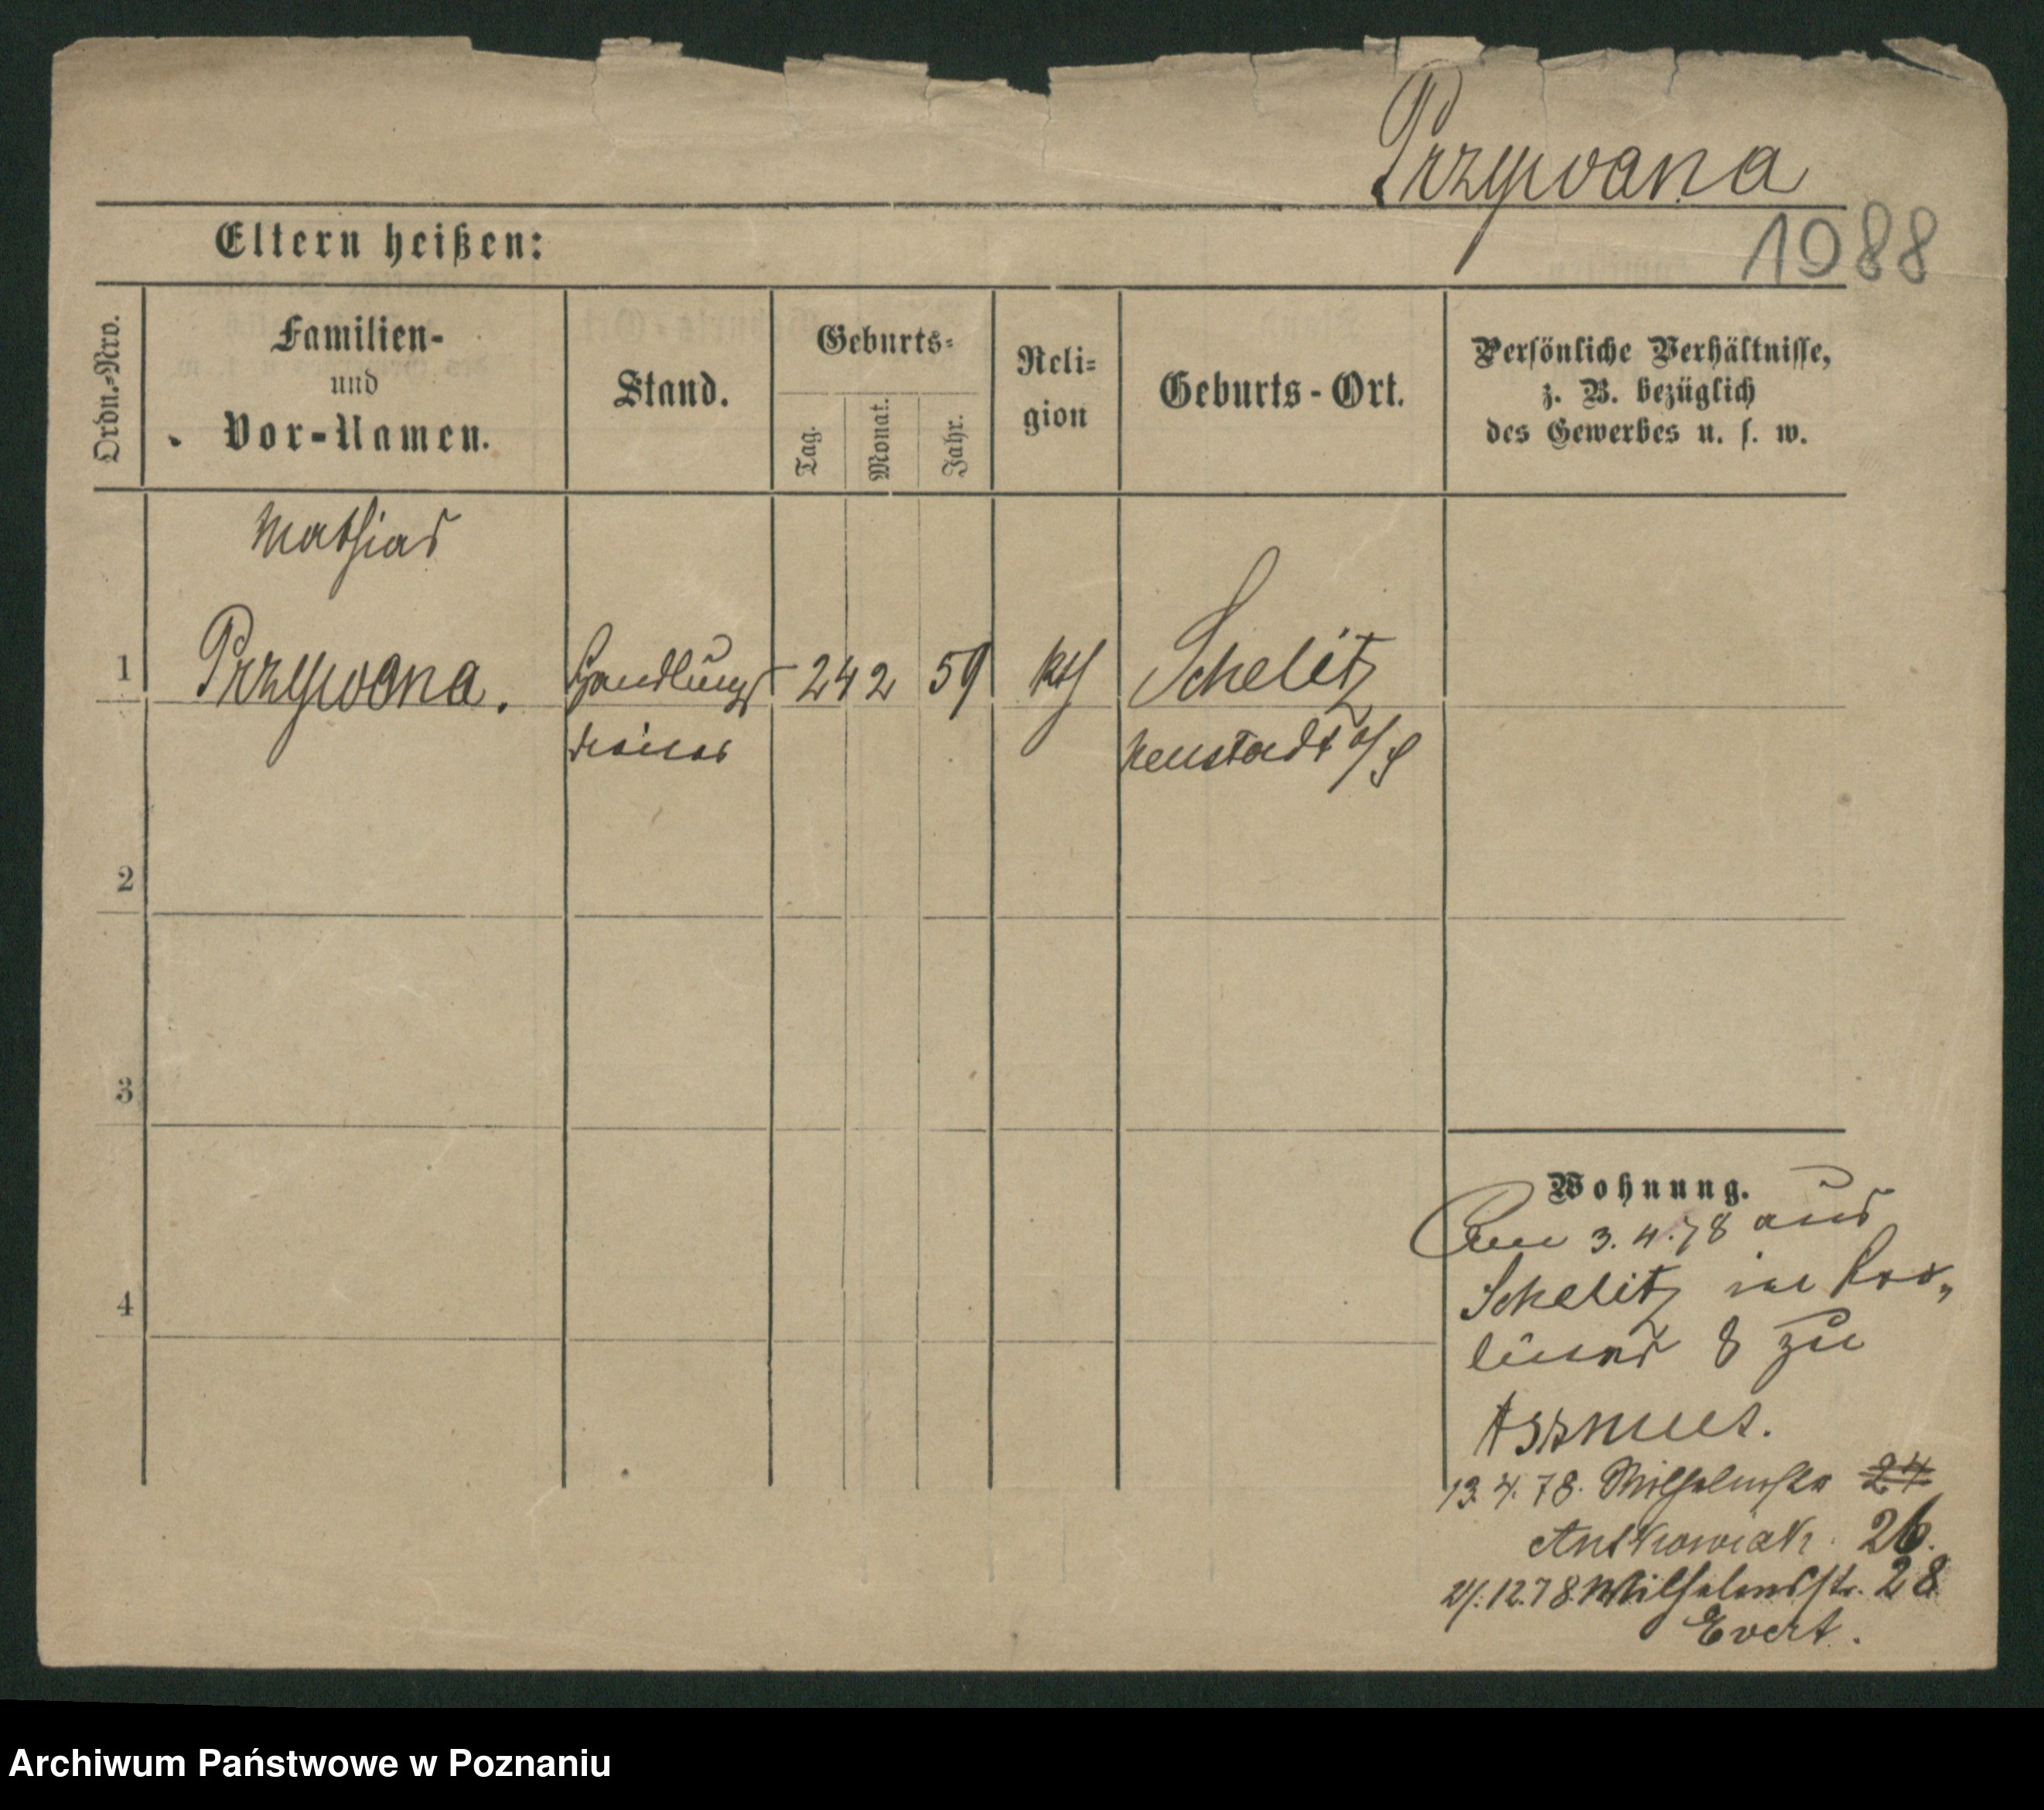 Przywana
1988
Eltern heißen:
Ordn.-Nro.
Familien-
und
Vor-Namen.
Stand.
Geburts-
Tag.
Monat.
Jahr.
Reli-
gion
Geburts-Ort.
Persönliche Verhältnisse,
z. B. bezüglich
des Gewerbes u. s. w.
Mathias
1 Przywana. Handlungs 24 2 59 kth Schelitz
Neustadt o/S
2
3
4
Wohnung.
Am 3.4.78 aus
Schelitz in
8 zu
Assmus.
13.4.78. Wilhelmstr 24
Antkowiak. 26.
21.12.78. Wilhelmsstr. 28
Evert.
Archiwum Państwowe w Poznaniu